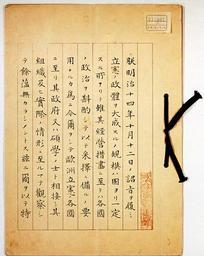 朕明治十四年十月十二日ノ詔旨ヲ履ミ
立憲ノ政體ヲ大成スルノ規模ハ固ヨリ一定
スル所アリト雖其經營措畫ニ至リテハ各國
ノ政治ヲ斟酌シテ以テ採擇ニ備フルノ要
用ナルカ為ニ今爾ヲシテ歐洲立憲ノ各國
ニ至リ其政府又ハ碩學ノ士ト相接シ其
組織及ヒ實際ノ情形ニ至ルマテ觀察シ
テ餘蘊無カラシメントス茲ニ爾ヲ以テ特